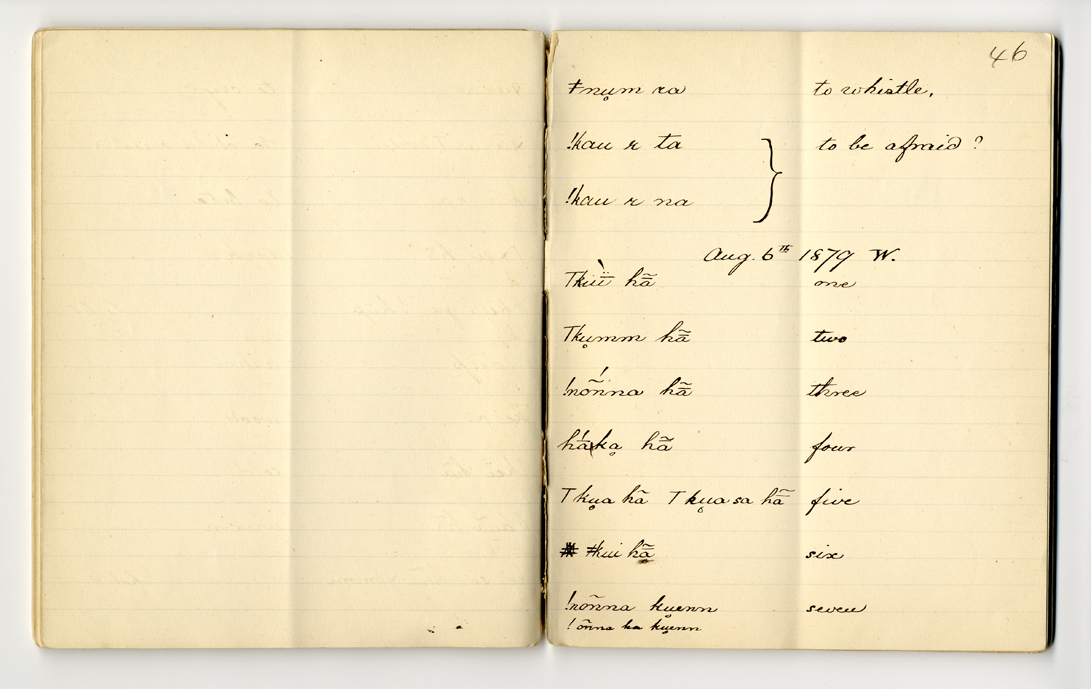 46
ǂnu̥m ra to whistle,
!kau r ta to be afraid?
!kau r na
Aug. 6th 1879 W.
Tkùï hã̄ one
Tku̥mm hã̄ two
!nṍnna hã̄ three
hā́kḁ hã̄ four
Tku̥a hã Tku̥a sa hã̄ five
ǂkui hã̄ six
!nõnna ku̥enn seven
!õnna ka ku̥enn